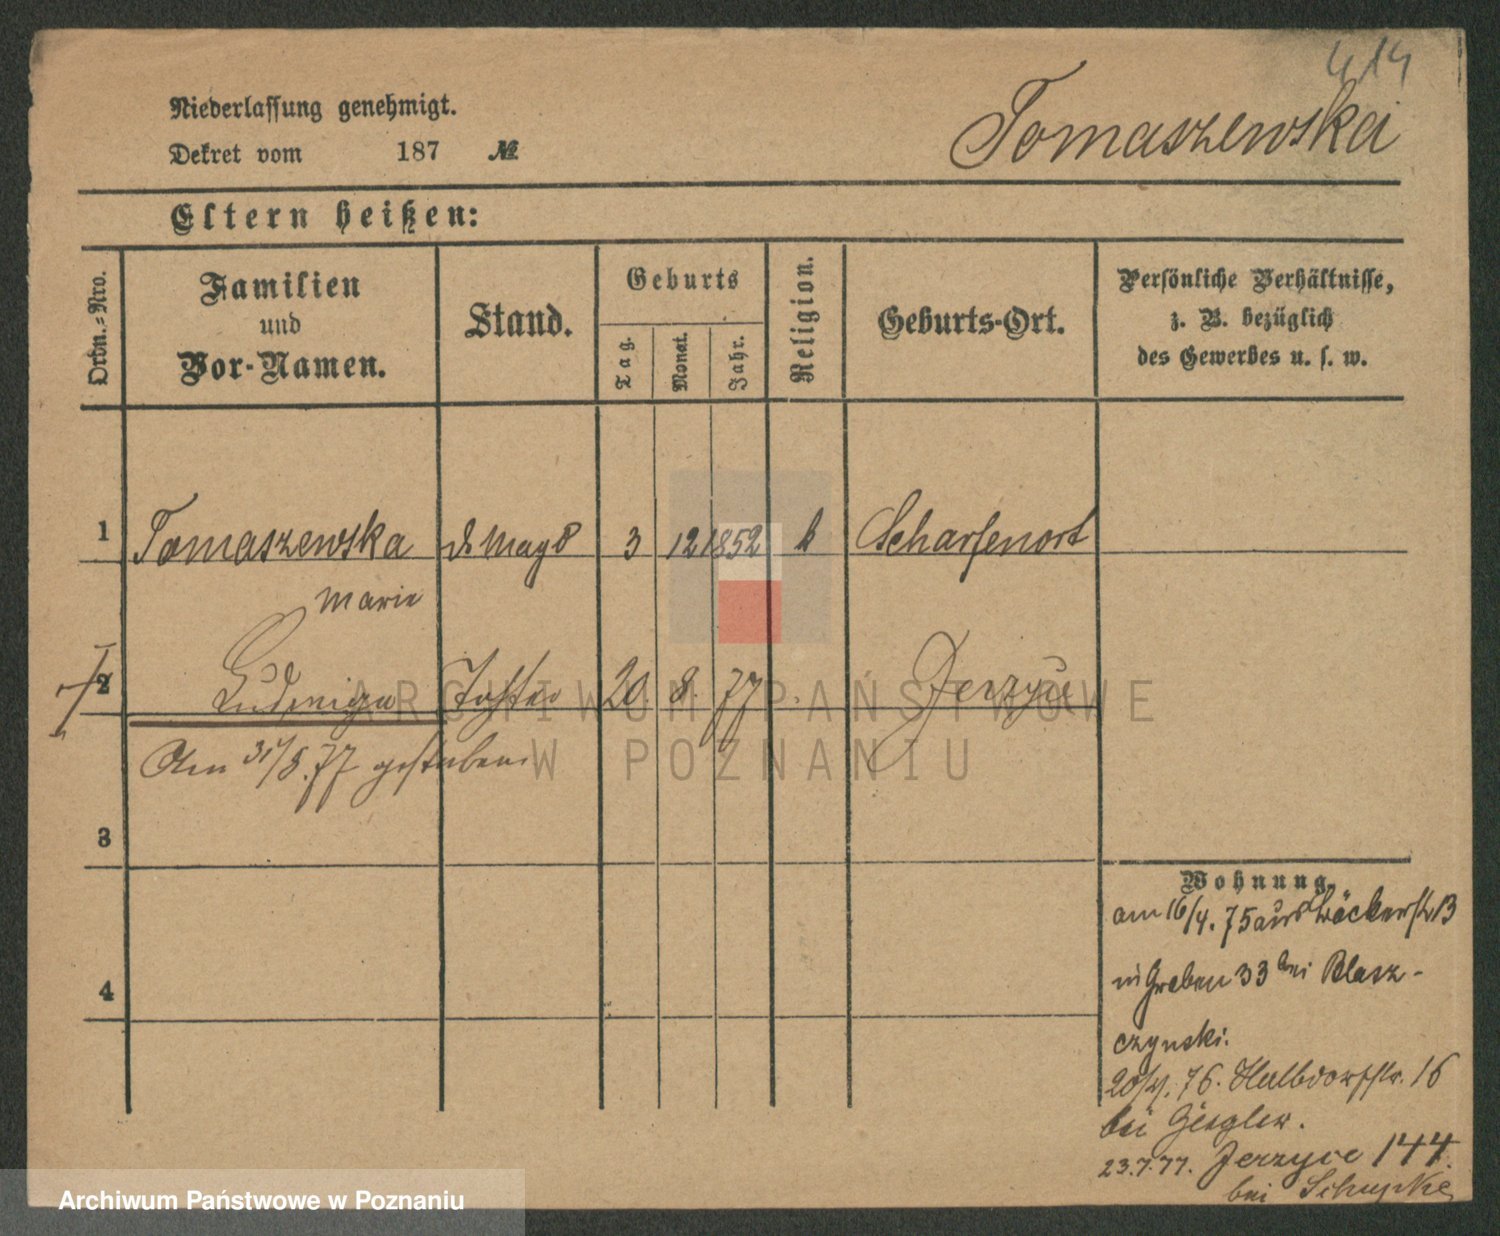 414
Niederlassung genehmigt.
Tomaszewska
Dekret vom 187 №
Eltern heißen:
Ordn.-Nro.
Familien
und
Vor-Namen.
Stand.
Geburts
Tag.
Monat.
Jahr.
Religion.
Geburts-Ort.
Persönliche Verhältnisse,
z. B. bezüglich
des Gewerbes u. s. w.
1 Tomaszewska 3 12 1852 k Scharfenort
Marie
2 Ludwiga Tochter 20. 8. 77 Jerzyce
Am 31/8. 77 gestorben.
3
4
Wohnung.
am 16/4. 75 aus Bäckerstr 13
in Graben 33 bei Blasz-
czynski.
76. Halbdorfstr. 16
bei Ziegler.
23.7.77. Jerzyce 144.
bei Schupke
ARCHIWUM PAŃSTWOWE
W POZNANIU
Archiwum Państwowe w Poznaniu